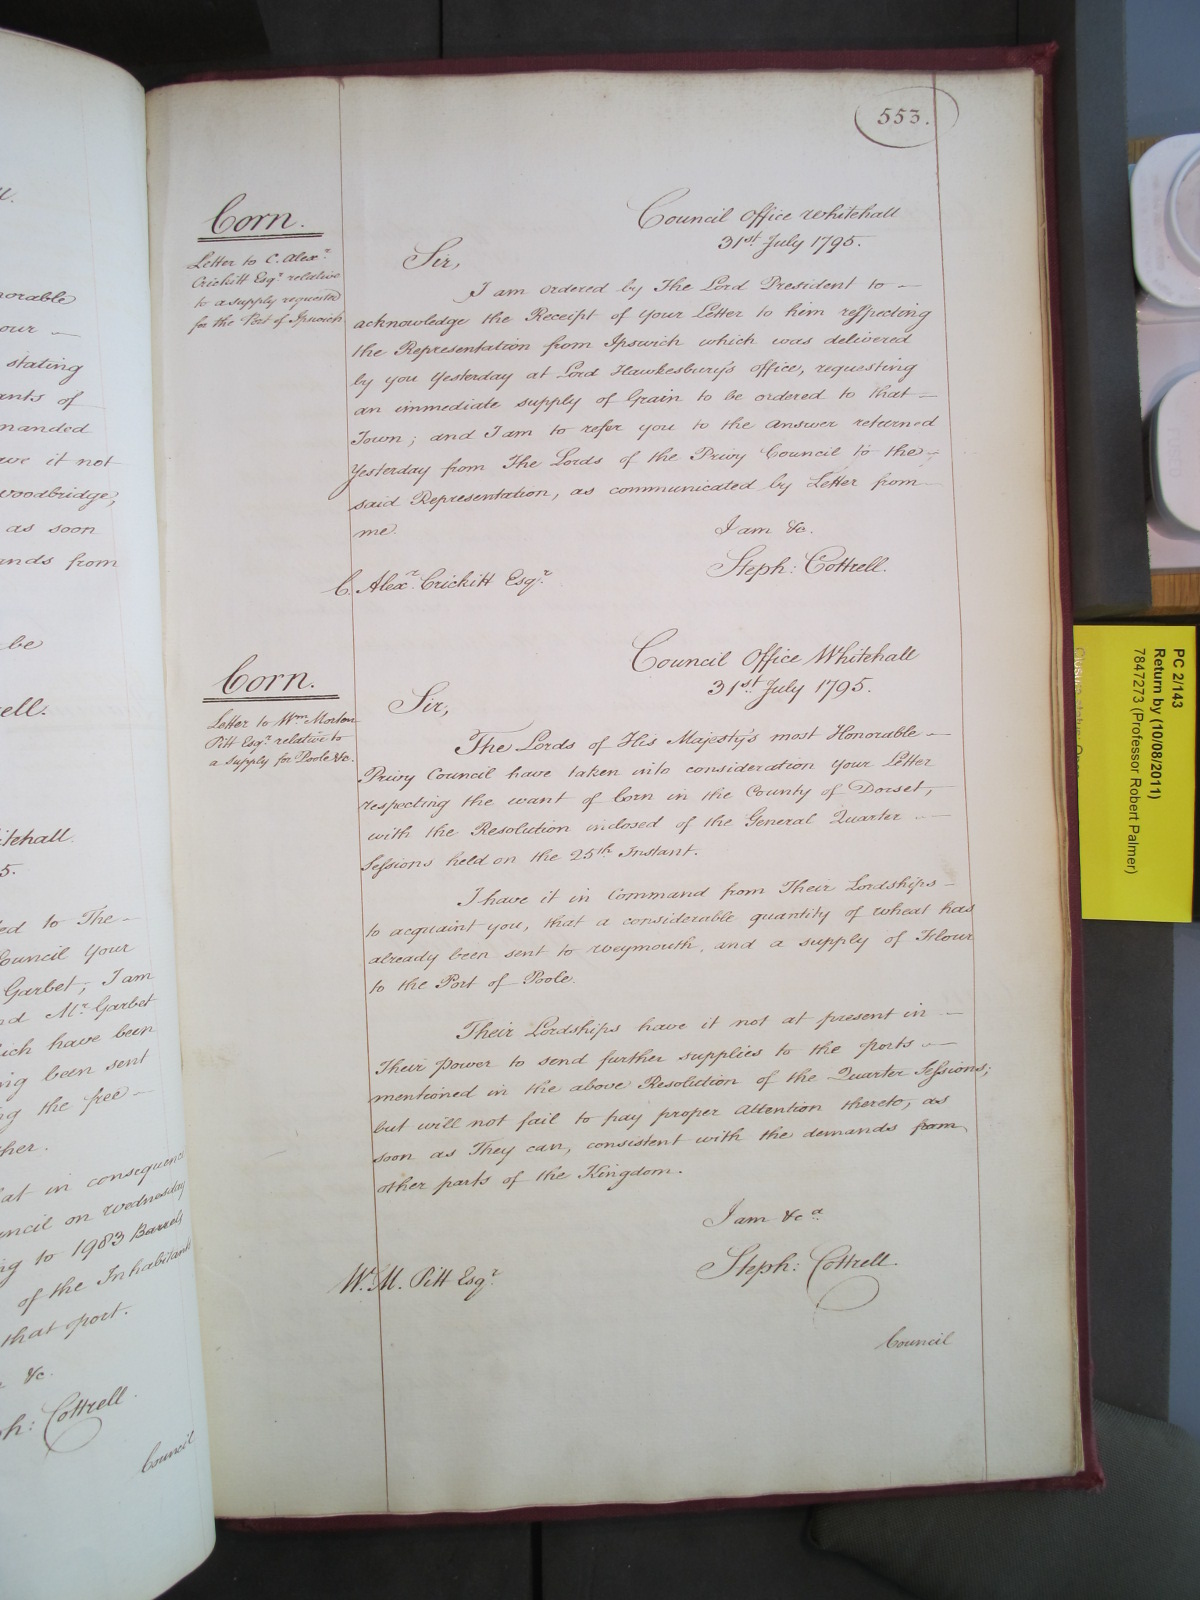 553.
Corn.
Letter to C. Alexr.
Crickitt Esqr. relative
to a supply requested
for the Port of Ipswich
Council Office Whitehall
31st July 1795.
Sir,
I am ordered by The Lord President to —
acknowledge the Receipt of your Letter to him respecting
the Representation from Ipswich which was delivered
by you Yesterday at Lord Hawkesbury's office, requesting
an immediate supply of Grain to be ordered to that —
Town; and I am to refer you to the Answer returned
Yesterday from The Lords of the Privy Council to the —
said Representation, as communicated by Letter from —
me.
I am &c.
Steph: Cottrell.
C. Alexr. Crickitt Esqr.
Corn.
Letter to Wm. Morton
Pitt Esqr. relative to
a supply for Poole &c.
Council Office Whitehall
31st July 1795.
Sir,
The Lords of His Majesty's most Honorable —
Privy Council have taken into consideration your Letter
respecting the want of Corn in the County of Dorset,
with the Resolution inclosed of the General Quarter —
Sessions held on the 25th Instant.
I have it in Command from Their Lordships —
to acquaint you, that a considerable quantity of wheat has
already been sent to Weymouth, and a supply of Flour
to the Port of Poole.
Their Lordships have it not at present in —
Their Power to send further supplies to the ports —
mentioned in the above Resolution of the Quarter Sessions;
but will not fail to pay proper Attention thereto, as
soon as They can, consistent with the demands from
other parts of the Kingdom.
I am &ca
Steph: Cottrell.
W. M. Pitt Esqr.
Council
norable
our —
stating
ants of
manded
ave it not
Woodbridge,
as soon
ands from
be
ell.
itehall.
5.
ed to The —
Council your
Garbet; I am
nd Mr. Garbet
ich have been
ng been sent
ng the free —
ther.
at in consequence
uncil on Wednesday
ng to 1983 Barrels
of the Inhabitants
that port.
&c.
ph: Cottrell
Council
PC 2/143
Return by (10/08/2011)
7847273 (Professor Robert Palmer)
Closure status: Open